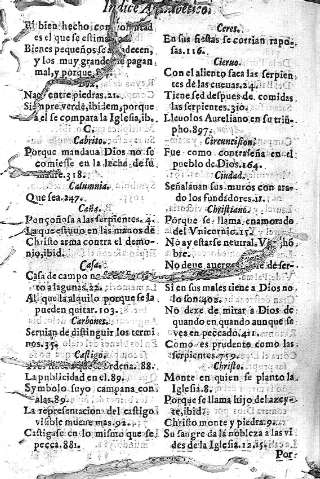 Indice Alfabetico.
El bien hecho con voluntad
es el que se estima
Bienes pequeños se agradecen,
y los muy grandes se pagan
mal, y porque,
Nace entre piedras.21.
Siempre verde, ibidem, porque
a el se compara la Iglesia, ib.
C.
Cabrito.
Porque mandaua Dios no se
comiesse en la leche de su
madre.318.
Calumnia.
Que sea.247.
Caña.
Ponçoñosa las serpientes.4.
La que estuuo en las manos de
Christo arma contra el demo-
nio, ibid.
Casa.
Casa de campo
to a lagunas.22.
Al que la alquilo porque se la
pueden quitar.103.
Carbones.
Seruian de distinguir los termi
nos.35
Castigo.
ordena.88.
La publicidad en el.89.
Symbolo suyo campana con
alas.89.
La representacion del castigo
visible mueue mas.92.
Castigase en lo mismo que se
pecca.881.
Ceres.
En sus fiestas se corrian rapo-
sas.116.
Cieruo.
Con el aliento saca las serpien
tes de las cueuas.24.
Tiene sed despues de comidas
las serpientes.310.
Lleuolos Aureliano en su triũ
pho.897.
Circuncision.
Fue como contraseña en el
pueblo de Dios.164.
Ciudad.
Señalauan sus muros con ara-
do los fundadores.11.
Christiano.
Porque se llama enamorado
del Vnicornio.15.
No ay estar se neutral,
bre.
No deue auergonçarse de ser-
lo
Si en sus males tiene a Dios no
lo son.402.
No dexe de mirar a Dios de
quando en quando aunque se
vea en peccado.411.
Como es prudento como las
serpientes.759.
Christo.
Monte en quien se planto la
Iglesia.8.
Porque se llama hijo del azey-
te, ibid.
Christo monte y piedra.9.
Su sangre da la nobleza a las vi
des de la Iglesia.12.15.
Por